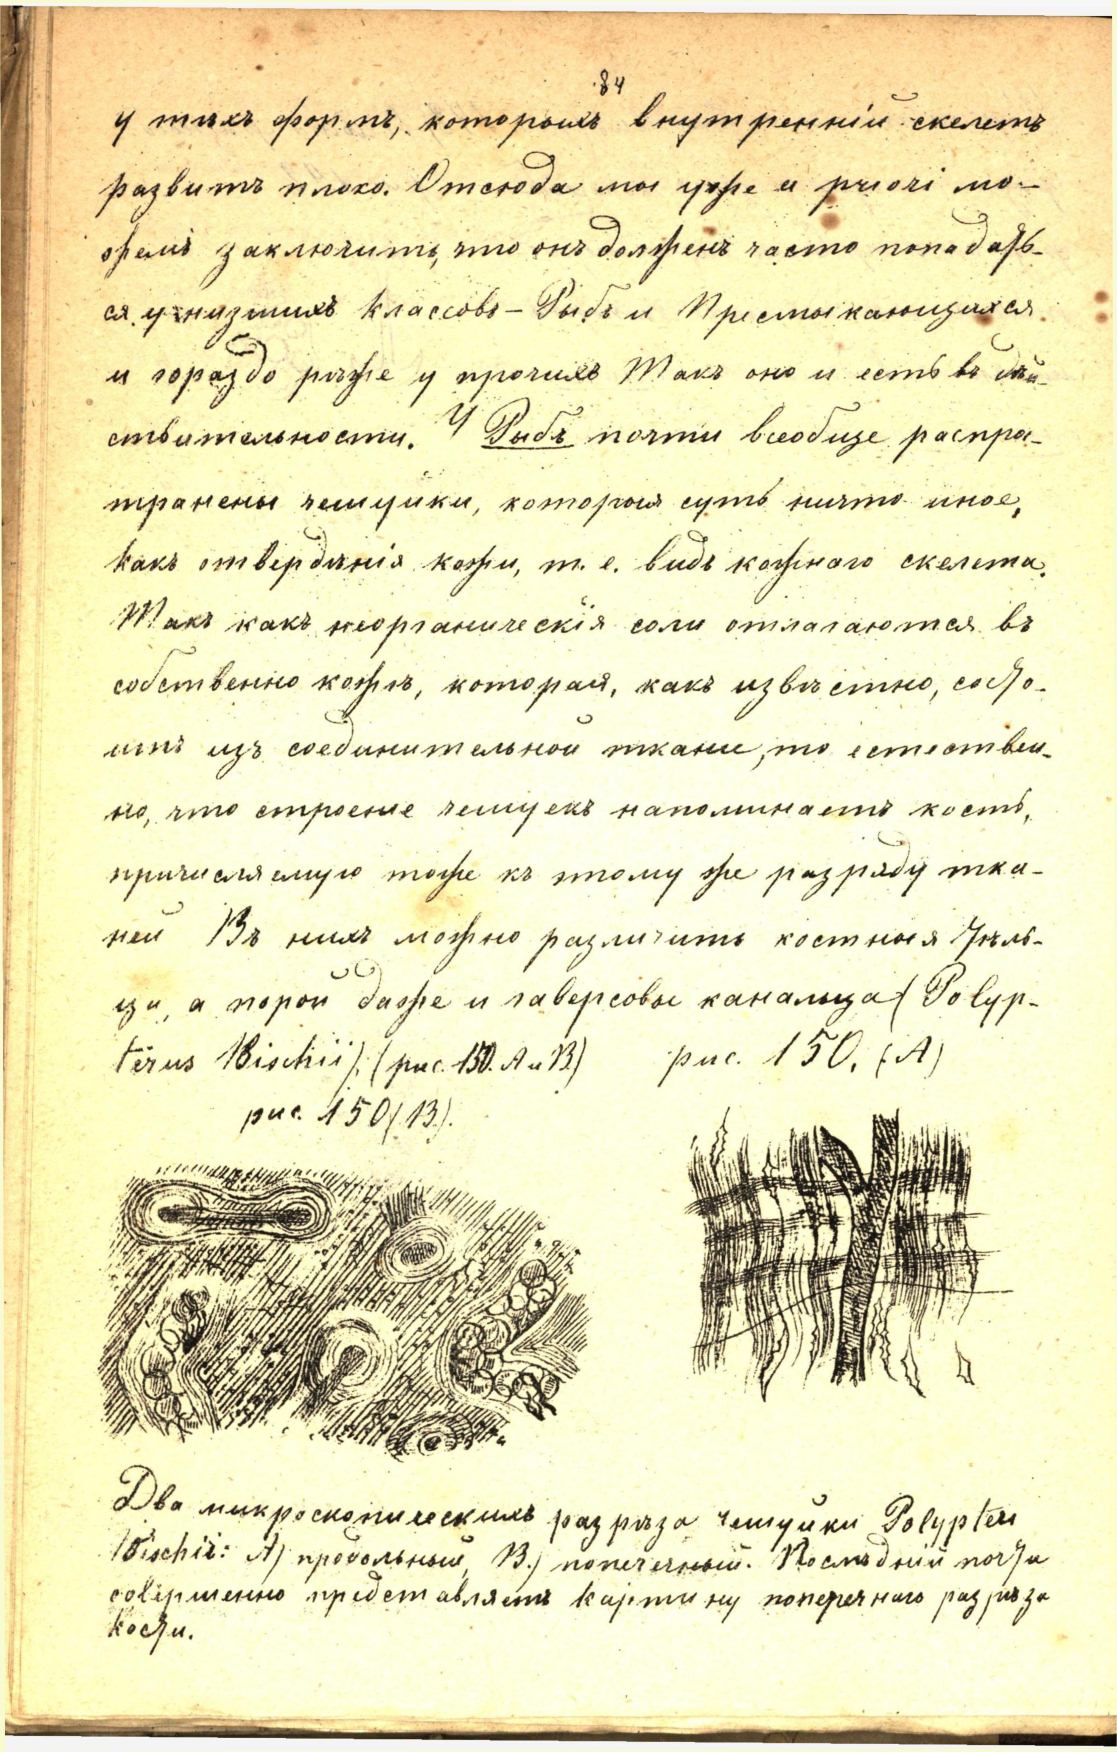 84
у тѣхъ формъ, которыхъ внутренній скелетъ
развитъ плохо. Отсюда мы уже a priori мо-
жемъ заключить, что онъ долженъ часто попадать-
ся у низшихъ классовъ – Рыбъ и Пресмыкающихся
и гораздо рѣже у прочихъ Такъ оно и есть въ дѣй-
ствительности. У Рыбъ почти всеобще распро-
транены чешуйки, которыя суть ничто иное,
какъ отвердѣнія кожи, т. е. видъ кожнаго скелета.
Такъ какъ неорганическія соли отлагаются въ
собственно кожѣ, которая, какъ извѣстно, состо-
итъ изъ соединительной ткани, то естествен-
но, что строение чешуекъ напоминаетъ кость,
причисляемую тоже къ этому же разряду тка-
ней Въ нихъ можно различить костныя тѣль-
ца, а порой даже и гаверсовы канальца (Polyp-
terus Bischii). (рис. 150. А и В.) рис. 150. (А)
рис. 150 (В).
Два микроскопическихъ разрѣза чешуйки Polypteri
Bischii: А) продольный, В.) поперечный. Послѣдній почти
совершенно представляетъ картину поперечнаго разрѣза
кости.